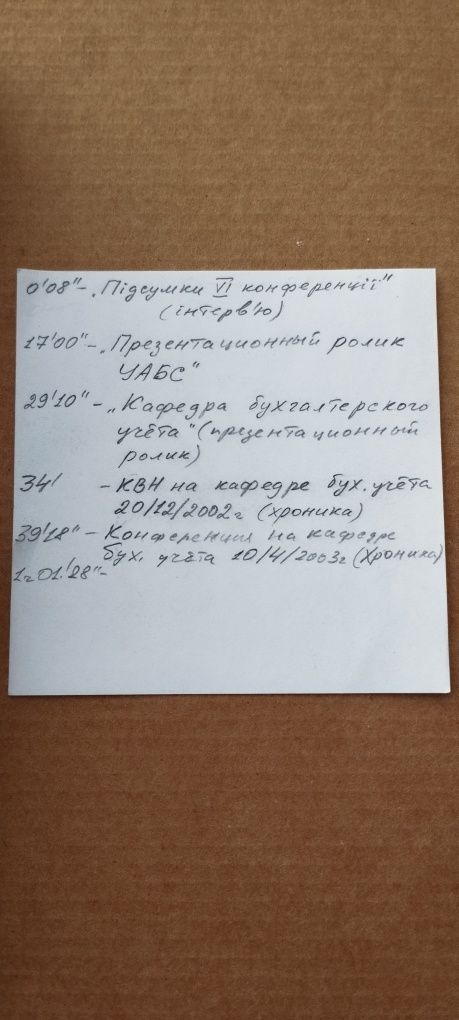 0'08" – „Підсумки VI конференції"
(інтерв'ю)
17'00" – „Презентационный ролик
УАБС"
29'10" – „Кафедра бухгалтерского
учёта" (презентационный
ролик)
34' – КВН на кафедре бух. учёта
20/12/2002г (хроника)
39'18" – Конференция на кафедре
бух. учёта 10/4/2003г (Хроника)
1ч01'28" –